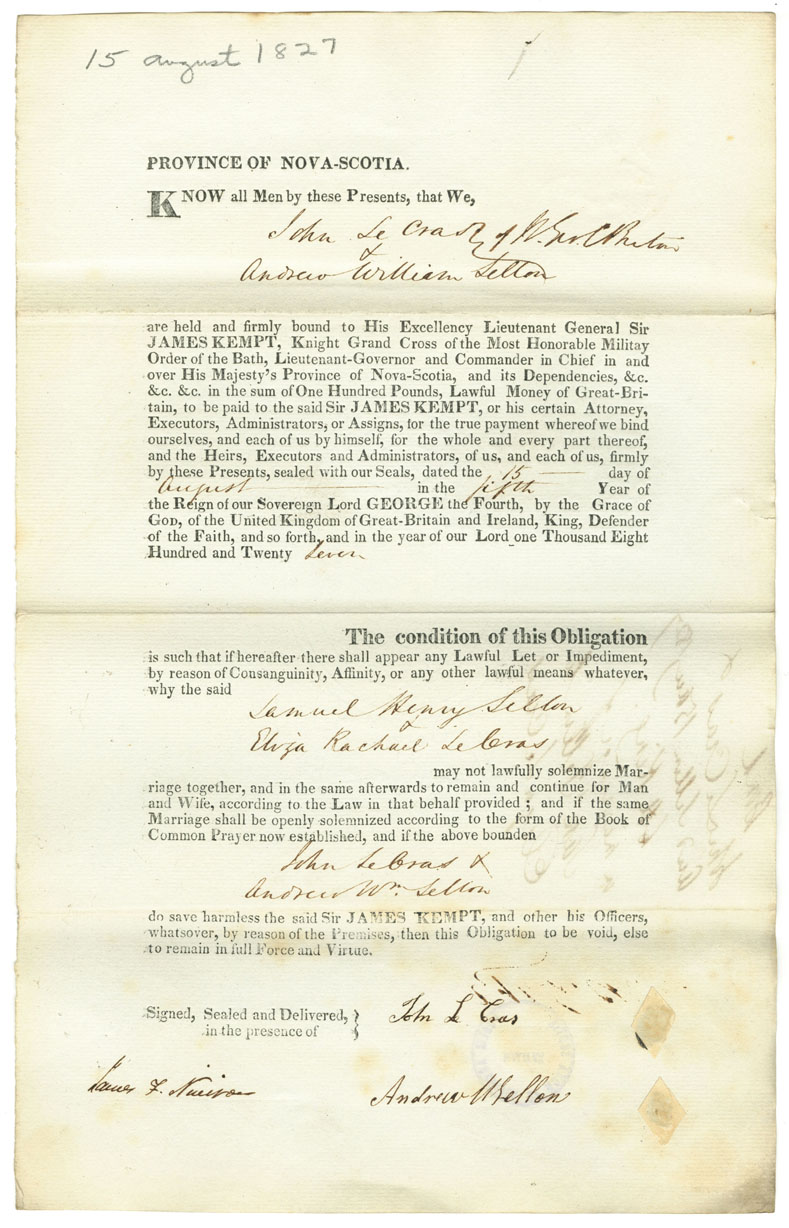 15 august 1827
PROVINCE OF NOVA-SCOTIA.
KNOW all Men by these Presents, that We,
John Le Cras of
&
Andrew William Sellon
are held and firmly bound to His Excellency Lieutenant General Sir
JAMES KEMPT, Knight Grand Cross of the Most Honorable Militay
Order of the Bath, Lieutenant-Governor and Commander in Chief in and
over His Majesty's Province of Nova-Scotia, and its Dependencies, &c.
&c. &c. in the sum of One Hundred Pounds, Lawful Money of Great-Bri-
tain, to be paid to the said Sir JAMES KEMPT, or his certain Attorney,
Executors, Administrators, or Assigns, for the true payment whereof we bind
ourselves, and each of us by himself, for the whole and every part thereof,
and the Heirs, Executors and Administrators, of us, and each of us, firmly
by these Presents, sealed with our Seals, dated the 15 day of
August in the fifth Year of
the Reign of our Sovereign Lord GEORGE the Fourth, by the Grace of
GOD, of the United Kingdom of Great-Britain and Ireland, King, Defender
of the Faith, and so forth, and in the year of our Lord one Thousand Eight
Hundred and Twenty Seven
The condition of this Obligation
is such that if hereafter there shall appear any Lawful Let or Impediment,
by reason of Consanguinity, Affinity, or any other lawful means whatever,
why the said
Samuel Henry Sellon
&
Eliza Rachael Le Cras
may not lawfully solemnize Mar-
riage together, and in the same afterwards to remain and continue for Man
and Wife, according to the Law in that behalf provided ; and if the same
Marriage shall be openly solemnized according to the form of the Book of
Common Prayer now established, and if the above bounden
John Le Cras &
Andrew Wm. Sellon
do save harmless the said Sir JAMES KEMPT, and other his Officers,
whatsover, by reason of the Premises, then this Obligation to be void, else
to remain in full Force and Virtue.
Signed, Sealed and Delivered, } John Le Cras
in the presence of
James F. Andrew W Sellon